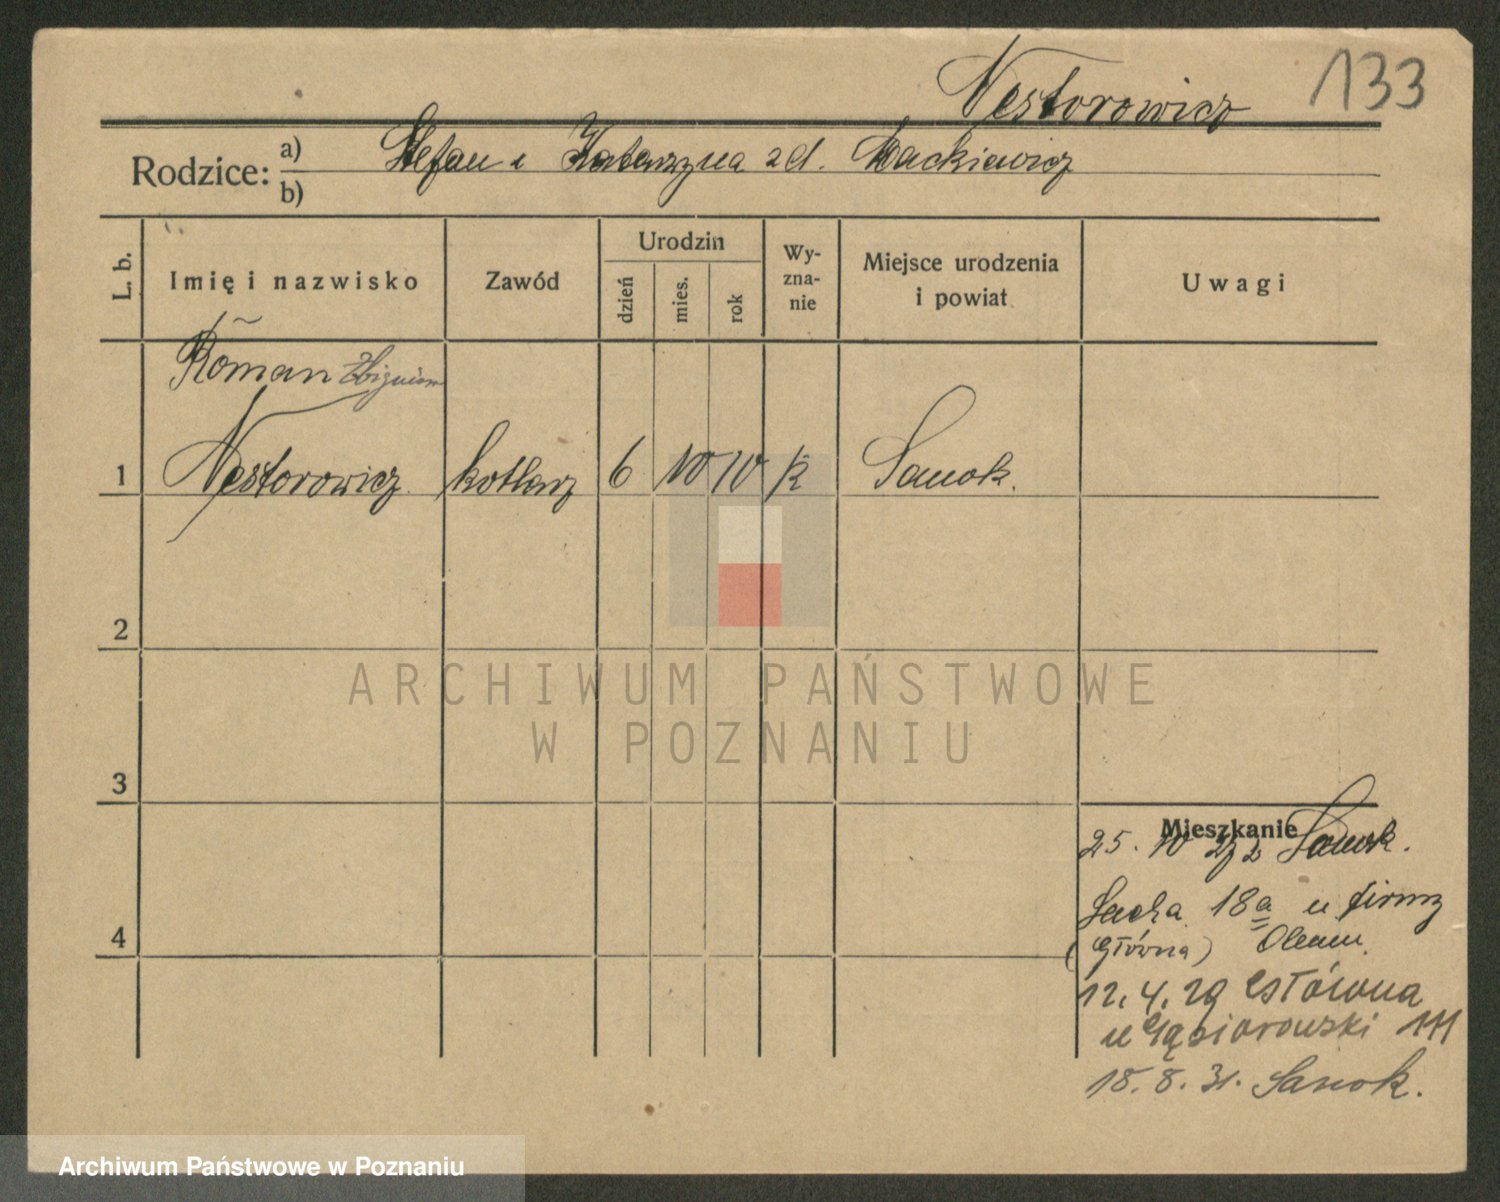 Nestorowicz 133
Rodzice: a) Stefan i Katarzyna zd. Mackiewicz
b)
L. b. Imię i nazwisko Zawód Urodzin dzień mies. rok Wy-zna-nie Miejsce urodzenia i powiat Uwagi
Roman Zbigniew
1 Nestorowicz kotlarz 6 10 10 k Sanok.
2
ARCHIWUM PAŃSTWOWE
W POZNANIU
3
Mieszkanie
25. 10 Sanok.
18a u firmy
4
(Główna)
12. 4. 29 Główna
u Gąsiorowski
18. 8. 31. Sanok.
Archiwum Państwowe w Poznaniu